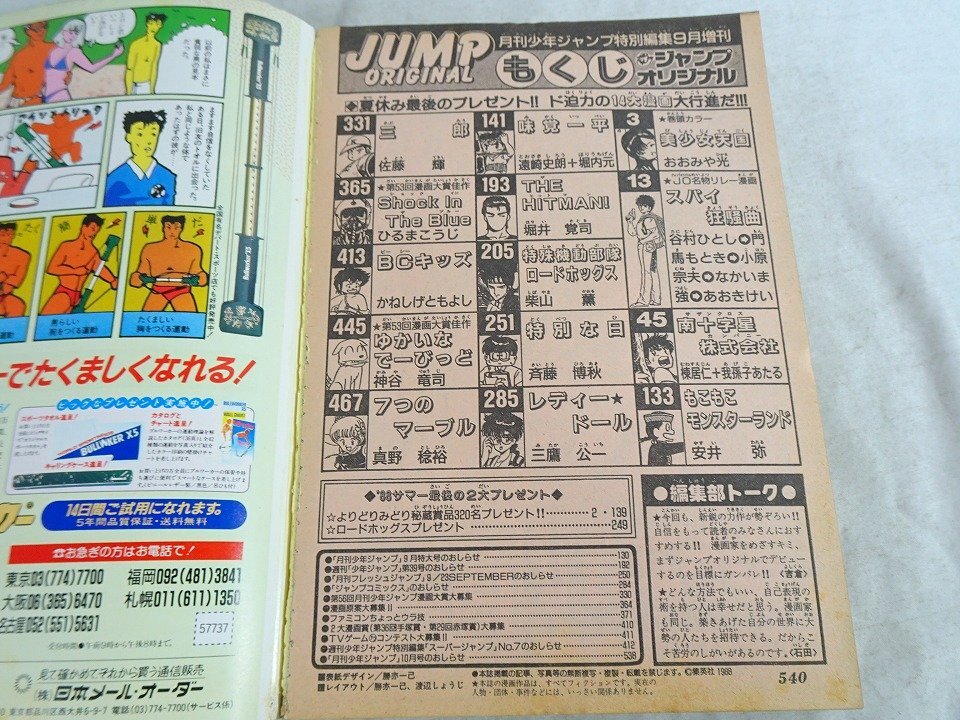 以前の私はまさに
貧弱な男の見本
だった。
ますます自信をなくしていた
ある日、旧友のトオルに出会った。
私と同じような体で
あったはずの彼が…
Bullworker X5
全国有名デパート・スポーツ店でも好評発売中!
男らしい
腕をつくる運動
たくましい
胸をつくる運動
ーでたくましくなれる!
カタログと
チャート進呈!
BULLWORKER X5
キャリングケース進呈!
14日間ご試用になれます。
5年間品質保証・送料無料
☎お急ぎの方はお電話で!
東京03(774)7700 福岡092(481)3841
大阪06(365)6470 札幌011(611)1350
名古屋052(551)5631
57737
見て確かめてそれから買う通信販売
(株)日本メール・オーダー
東京都品川区西大井6-9-7 電話(03)774-7700(サービス係)
JUMP
ORIGINAL
月刊少年ジャンプ特別編集9月増刊
もくじ
ジャンプ
オリジナル
◆夏休み最後のプレゼント!!ド迫力の14大漫画大行進だ!!!
3
★巻頭カラー
美少女天国
おおみや光
13
★JO名物リレー漫画
スパイ
狂騒曲
谷村ひとし✪門
馬もとき✪小原
宗夫✪なかいま
強✪あおきけい
45
サザンクロス
南十字星
株式会社
棟居仁+我孫子あたる
133
もこもこ
モンスターランド
安井 弥
141
味覚一平
遠崎史朗+堀内元
193
THE
HITMAN!
堀井 覚司
205
特殊機動部隊
ロードホックス
柴山 薫
251
特別な日
斉藤 博秋
285
レディー★
ドール
三鷹 公一
331
三郎
佐藤 輝
365
★第53回漫画大賞佳作
Shock In
The Blue
ひるまこうじ
413
BCキッズ
かねしげともよし
445
★第53回漫画大賞佳作
ゆかいな
でーびっど
神谷 竜司
467
7つの
マーブル
真野 稔裕
◆'88サマー最後の2大プレゼント◆
☆よりどりみどり秘蔵賞品320名プレゼント!! 2・139
☆ロードホックスプレゼント 249
●「月刊少年ジャンプ」9月特大号のおしらせ 130
●週刊「少年ジャンプ」第39号のおしらせ 192
●「月刊フレッシュジャンプ」9/23SEPTEMBERのおしらせ 250
●「ジャンプコミックス」のおしらせ 284
●第56回月刊少年ジャンプ漫画大賞募集 330
●漫画原案大募集II 364
●ファミコンちょっとウラ技 371
●2大漫画賞(第36回手塚賞・第29回赤塚賞)大募集 410
●TVゲームコンテスト大募集II 411
●週刊少年ジャンプ特別編集「スーパージャンプ」No.7のおしらせ 412
●「月刊少年ジャンプ」10月号のおしらせ 538
■表紙デザイン/勝赤一己
■レイアウト/勝赤一己、渡辺しょうじ
●編集部トーク●
★今回も、新鋭の力作が勢ぞろい!!
自信をもって読者のみなさんにおす
すめする!!漫画家をめざすキミ、
まずジャンプオリジナルでデビュー
するのを目標にガンバレ!!
★どんな方法でもいい、自己表現の
術を持つ人は幸せだと思う。漫画家
も同じ。築きあげた自分の世界に大
勢の人たちを招待できる。だからこ
そ苦労のしがいがあるのです。〈石田〉
●本誌掲載の記事、写真等の無断複写・複製・転載を禁じます。©集英社 1988
★本誌の漫画作品は、すべてフィクションです。実在の
人物・団体・事件などには、いっさい関係ありません。
540